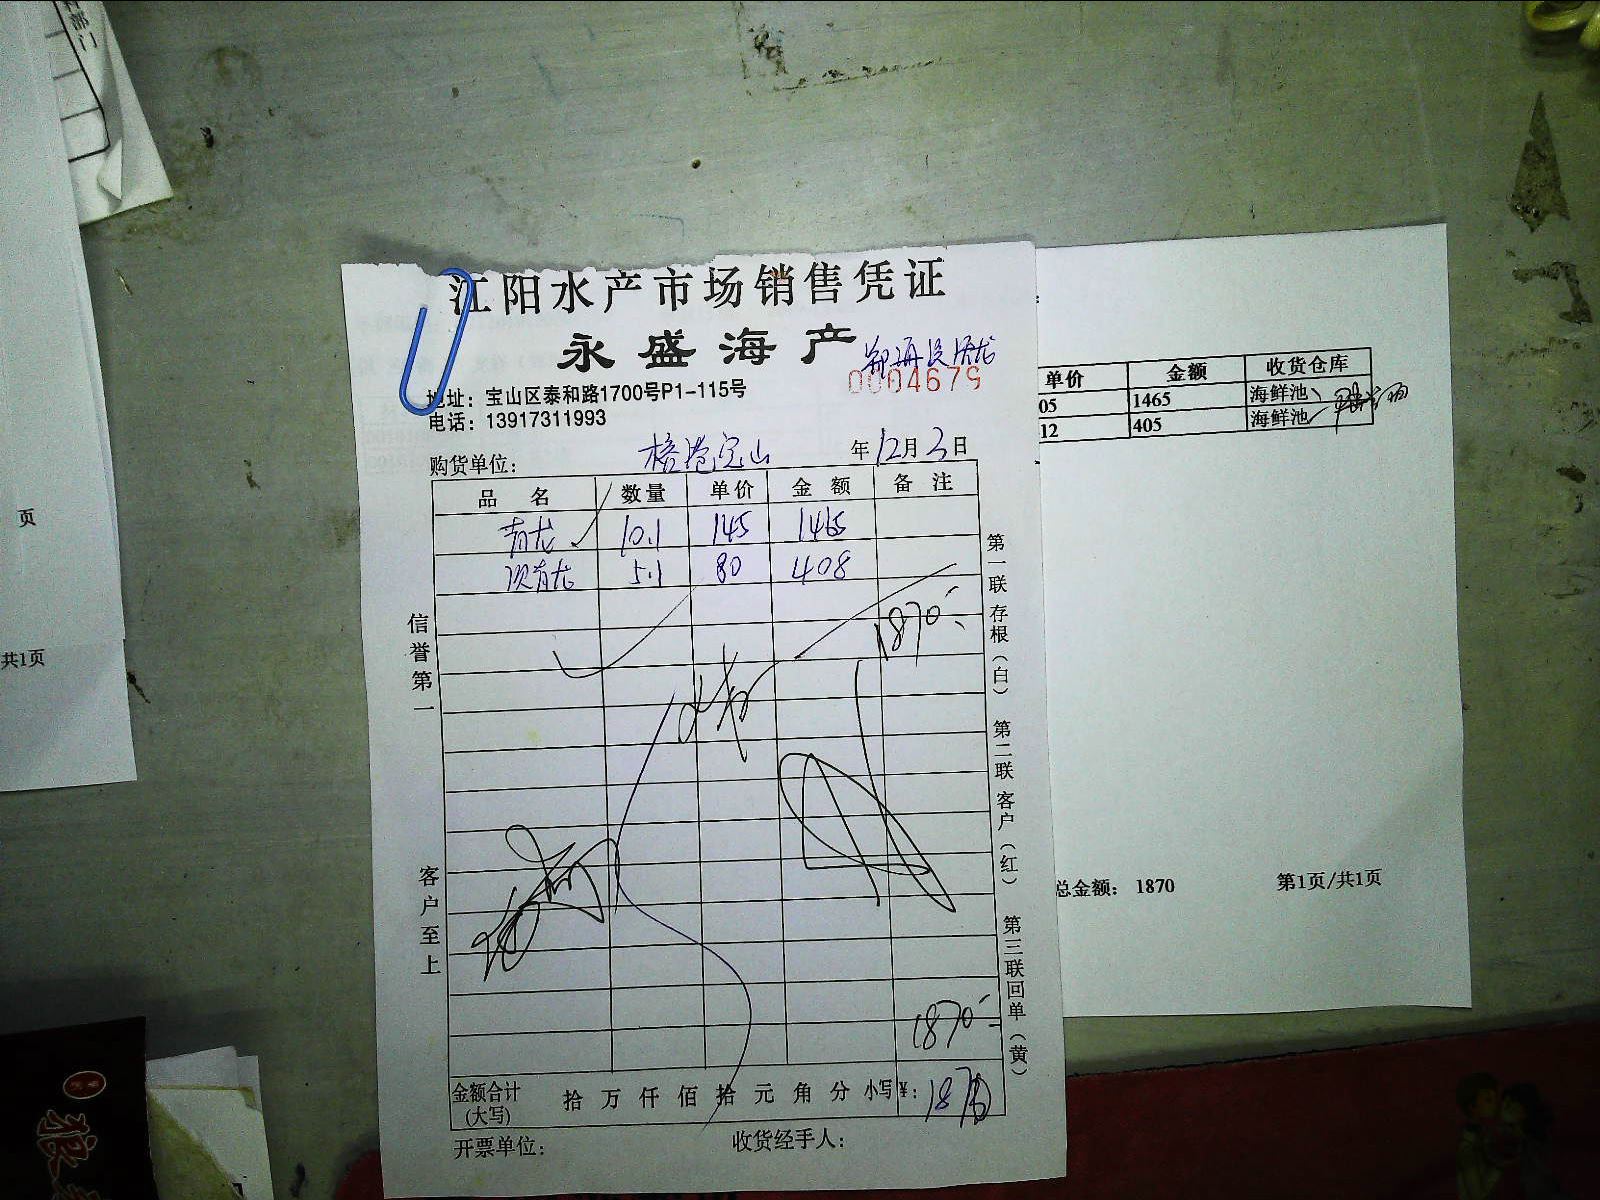 部门
页
共1页
江阳水产市场销售凭证
永盛海产
0004679
地址：宝山区泰和路1700号P1-115号
电话：13917311993
购货单位： 年12月3日
品 名 数量 单价 金 额 备 注
青龙 10.1 145 1465
次青龙 5.1 80 408
1870
1870
金额合计(大写) 拾 万 仟 佰 拾 元 角 分 小写¥：1870
开票单位： 收货经手人：
信誉第一
客户至上
第一联存根（白） 第二联客户（红） 第三联回单（黄）
单价 金额 收货仓库
05 1465 海鲜池
12 405 海鲜池
总金额： 1870 第1页/共1页